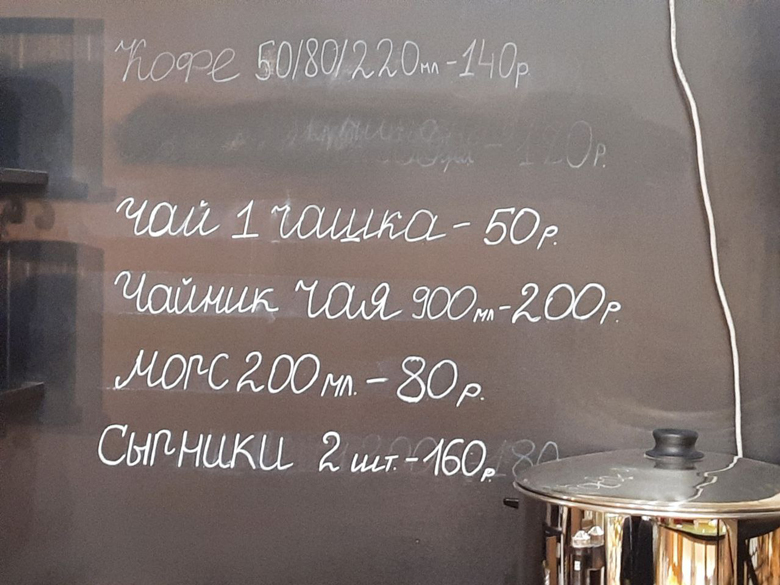 Кофе 50/80/220мл-140р.
- 120р.
Чай 1 чашка - 50р.
Чайник чая 900мл-200р.
Морс 200мл. - 80р.
Сырники 2 шт. - 160р.
180